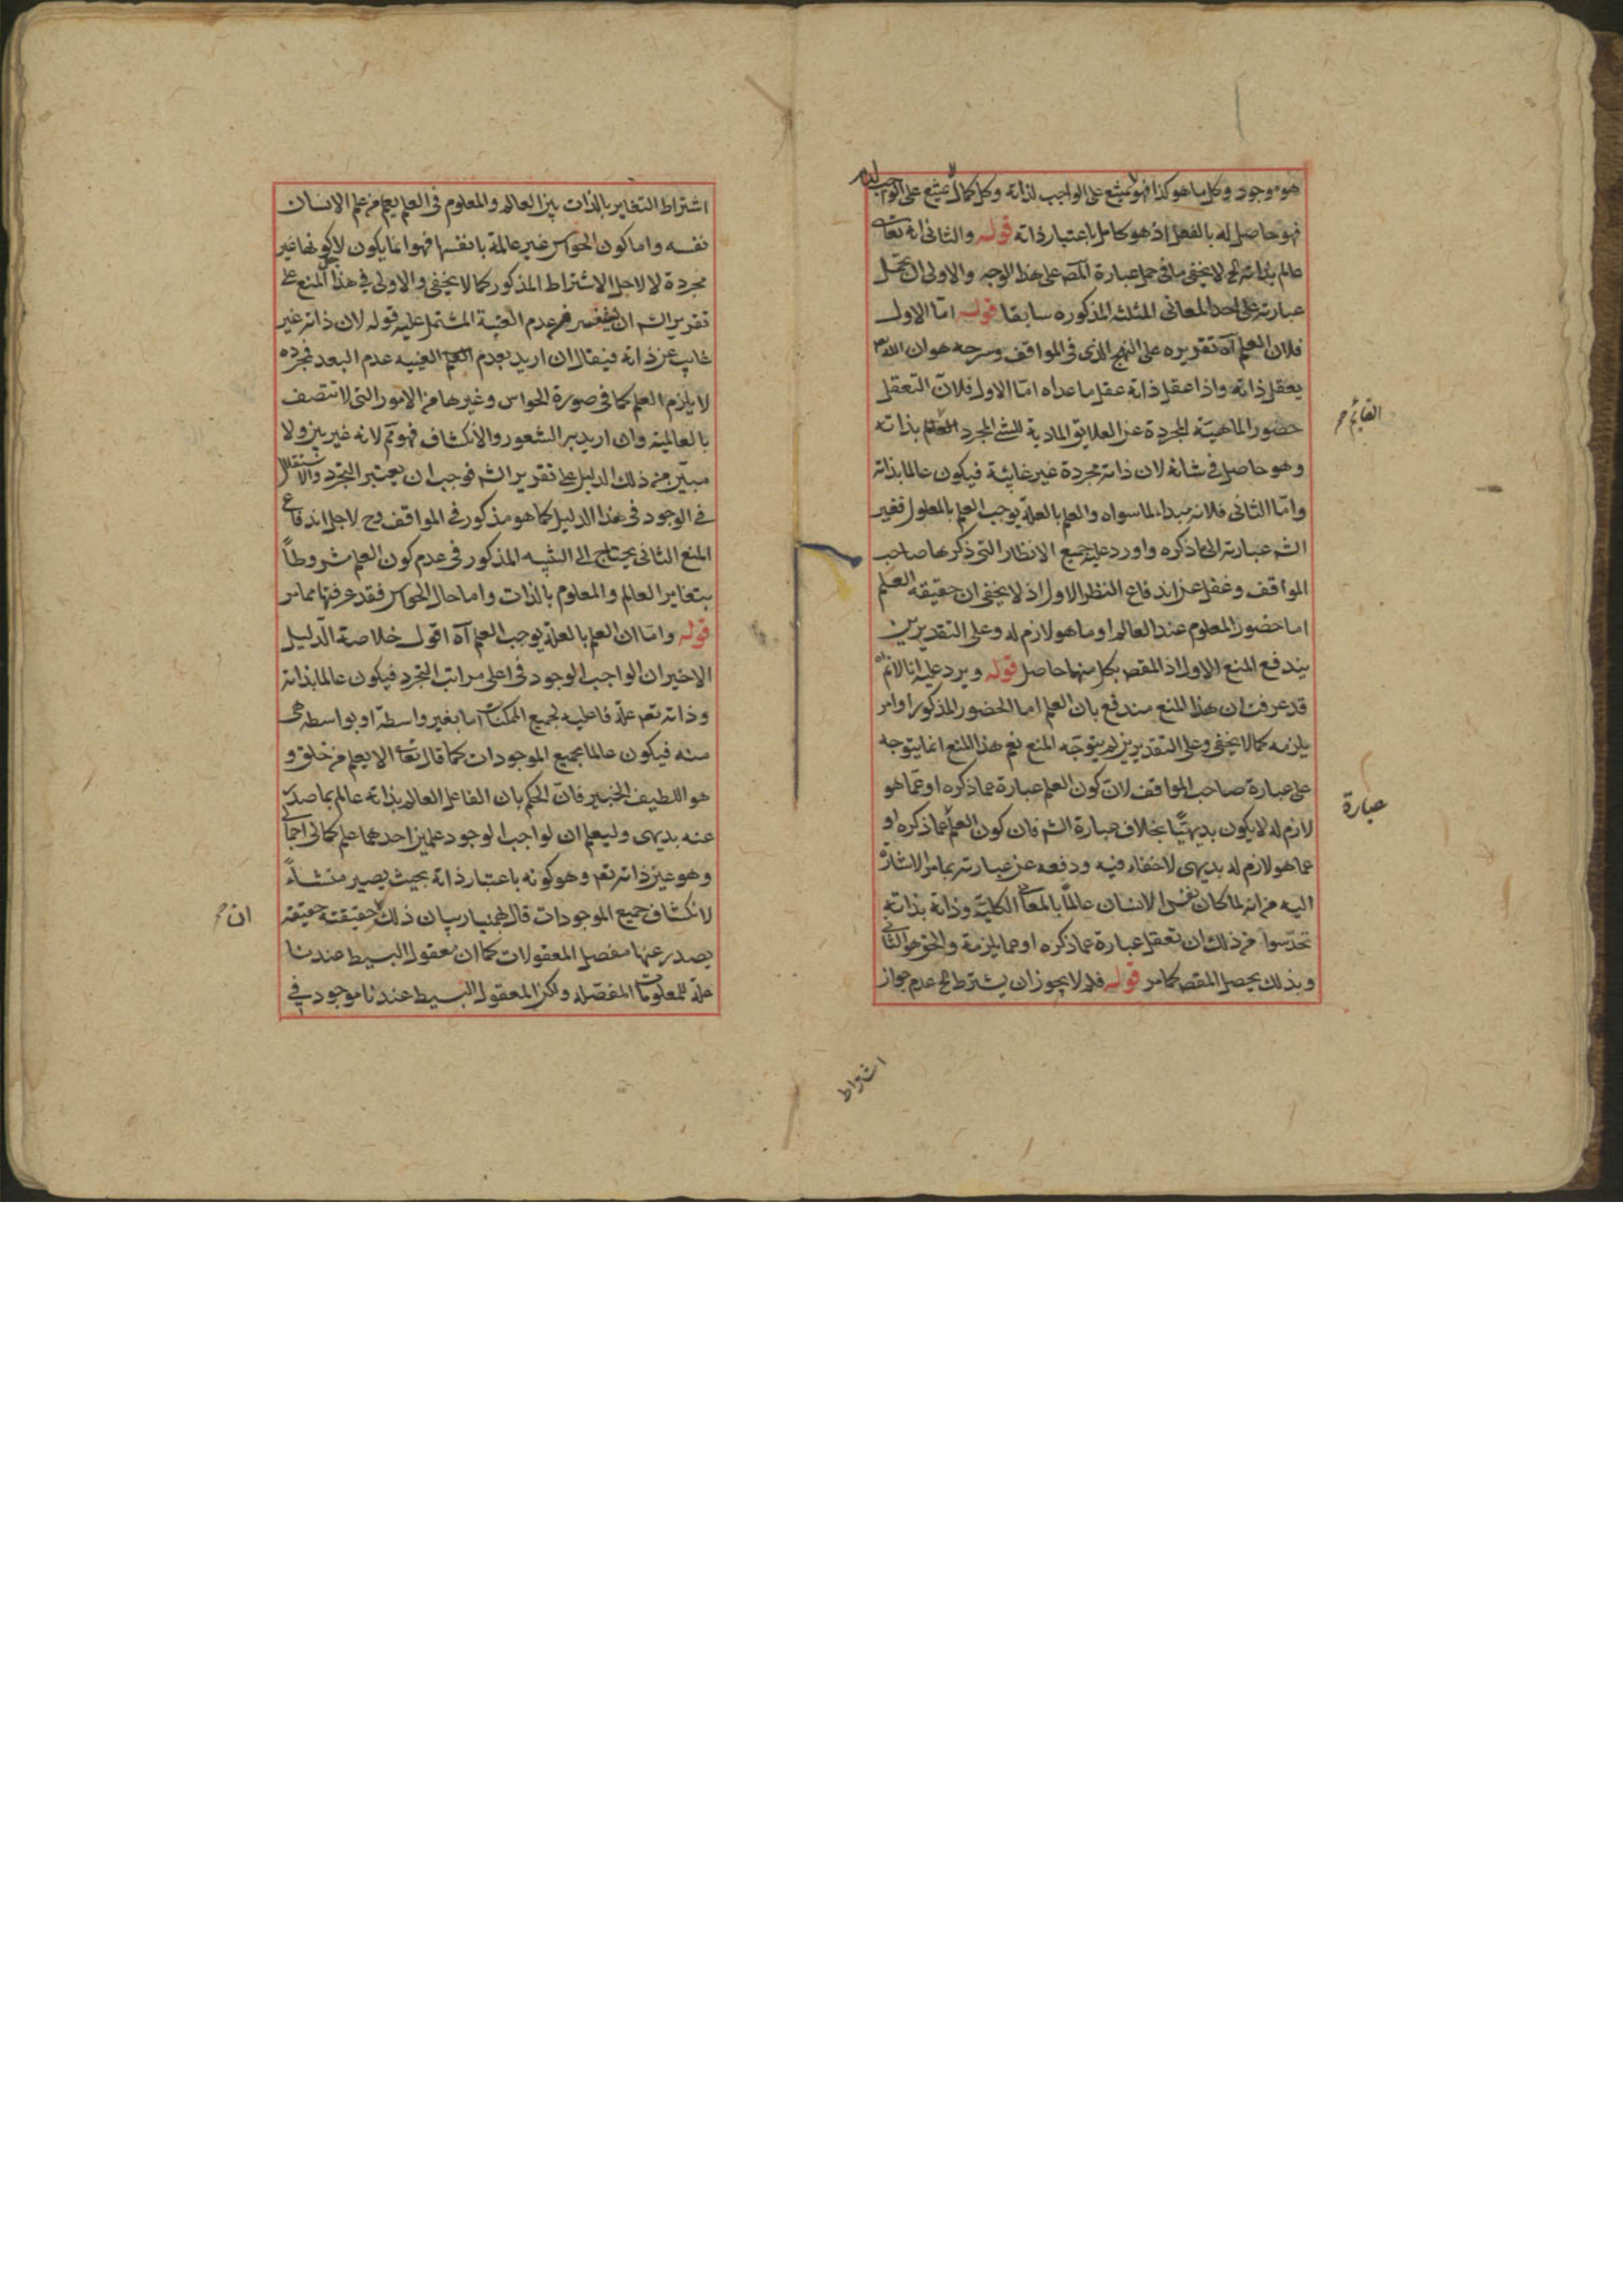 هو موجود وكل ما هو كذا فهو لا يمتنع على الواجب لذاته وكل كمال لا يمتنع على الواجب لذاته
فهو حاصل له بالفعل اذ هو كامل باعتبار ذاته قوله والثانى انه تعالى
عالم بذاته الخ لا يخفى ما فى حمل عبارة المص على هذا الوجه والاولى ان تحمل
عبارته على احد المعانى الثلثة المذكوره سابقا قوله اما الاول
فلان العلم آه تقريره على النهج الذى فى المواقف وسرحه هو ان الله تع
يعقل ذاته واذا عقل ذاته عقل ما عداه امّا الاول فلانّ التعقل
حضور الماهيّة المجردة عن العلايق المادية للشئ المجرد بذاته
القائم
وهو حاصل فى شانه لان ذاته مجردة غير غائبة فيكون عالما بذاته
وامّا الثانى فلانه مبداء لما سواه والعلم بالعلة يوجب العلم بالمعلول فغير
الشه عبارته الى ما ذكره واورد عليه جميع الانظار التى ذكرها صاحب
المواقف وغفل عن اندفاع النظر الاول اذ لا يخفى ان حقيقة العلم
اما حضور المعلوم عند العالم او ما هو لازم له وعلى التقديرين
يندفع المنع الاول اذ المقص بكل منهما حاصل قوله ويرد عليه انا لانم
قد عرفت ان هذا المنع مندفع بان العلم اما الحضور المذكور او امر
يلزمه كما لا يخفى وعلى التقديرين لم يتوجّه المنع نعم هذا المنع انما يتوجه
على عبارة صاحب المواقف لان كون العلم عبارة عما ذكره او عمّا هو
لازم له لا يكون بديهيّا بخلاف عبارة الشه فان كون العلم عما ذكره او
عبارة
عما هو لازم له بديهى لاخفاء فيه ودفعه عن عبارته بما مر الاشارة
اليه من انه لما كان نفس الانسان عالمًا بالمعانى الكليّة وذاته بذاته
تحدّسوا من ذلك ان تعقل عبارة عما ذكره او عما يلزمه والحق هو الثانى
وبذلك يحصل المقص كما مر قوله فلم لا يجوز ان يشترط الخ عدم جواز
اشتراط
اشتراط التغاير بالذات بين العالم والمعلوم فى العلم يعلم من علم الانسان
نفسه واما كون الحواس غير عالمة بانفسها فهو انما يكون لاجل كونها غير
مجردة لا لاجل الاشتراط المذكور كما لا يخفى والاولى فى هذا المنع على
تقرير الشه ان يستفسر عن عدم الغيبة المشتمل عليه قوله لان ذاته غير
غايب عن ذاته فيقال ان اريد بعدم الغيبه عدم البعد فمجرده
لا يلزم العلم كما فى صورة الحواس وغيرها من الامور التى لا تتصف
بالعالمية وان اريد به الشعور والانكشاف فهو تم لانه غير بين ولا
مبيّن من ذلك الدليل على تقرير الشه فوجب ان يعتبر التجرد والاستقلال
فى الوجود فى هذا الدليل كما هو مذكور فى المواقف وح لاجل اندفاع
المنع الثانى يحتاج الى التنبيه المذكور فى عدم كون العلم مشروطاً
بتغاير العالم والمعلوم بالذات واما حال الحواس فقد عرفتها مما مر
قوله وامّا ان العلم بالعلة يوجب العلم آه اقول خلاصة الدّليل
الاخير ان الواجب الوجود فى اعلى مراتب التجرد فيكون عالما بذاته
وذاته تعم علّة فاعلية لجميع الممكنات اما بغير واسطة او بواسطة هى
منه فيكون عالما بجميع الموجودات كما قال تعالى الا يعلم من خلق و
هو اللطيف الخبير فانّ الحكم بان الفاعل العالم بذاته عالم بما صدر
عنه بديهى وليعلم ان لواجب الوجود علمين احدهما علم كمالى اجمالى
وهو عين ذاته تعم وهو كونه باعتبار ذاته بحيث يصير منشاءً
لانكشاف جميع الموجودات قال بهمنيار بيان ذلك حقيقته حقيقة
ان
يصدر عنها مفصل المعقولات كما ان معقول البسيط عندنا
علة للمعلومات المفصّلة ولكن المعقول البسيط عندنا موجود فى